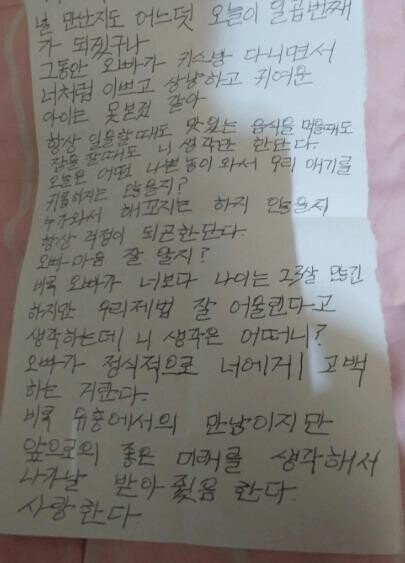 널 만난지도 어느덧 오늘이 일곱번째
가 되겠구나
그동안 오빠가 키스방 다니면서
너처럼 이쁘고 상냥하고 귀여운
아이는 못본것 같아
항상 일을할때도 맛있는 음식을 먹을때도
잠을 잘때도 니 생각만 한단다.
오늘은 어떤 나쁜놈이와서 우리 애기를
키롭히지는 않을지?
누가와서 해꼬지는 하지 않을지
항상 걱정이 되곤한단다.
오빠마음 잘 알지?
비록 오빠가 너보다 나이는 23살 많긴
하지만 우리제법 잘 어울린다고
생각하는데 니 생각은 어떠니?
오빠가 정식적으로 너에게 고백
하는 거란다.
비록 유흥에서의 만남이지만
앞으로의 좋은 미래를 생각해서
나가날 받아 줬음 한다.
사랑한다